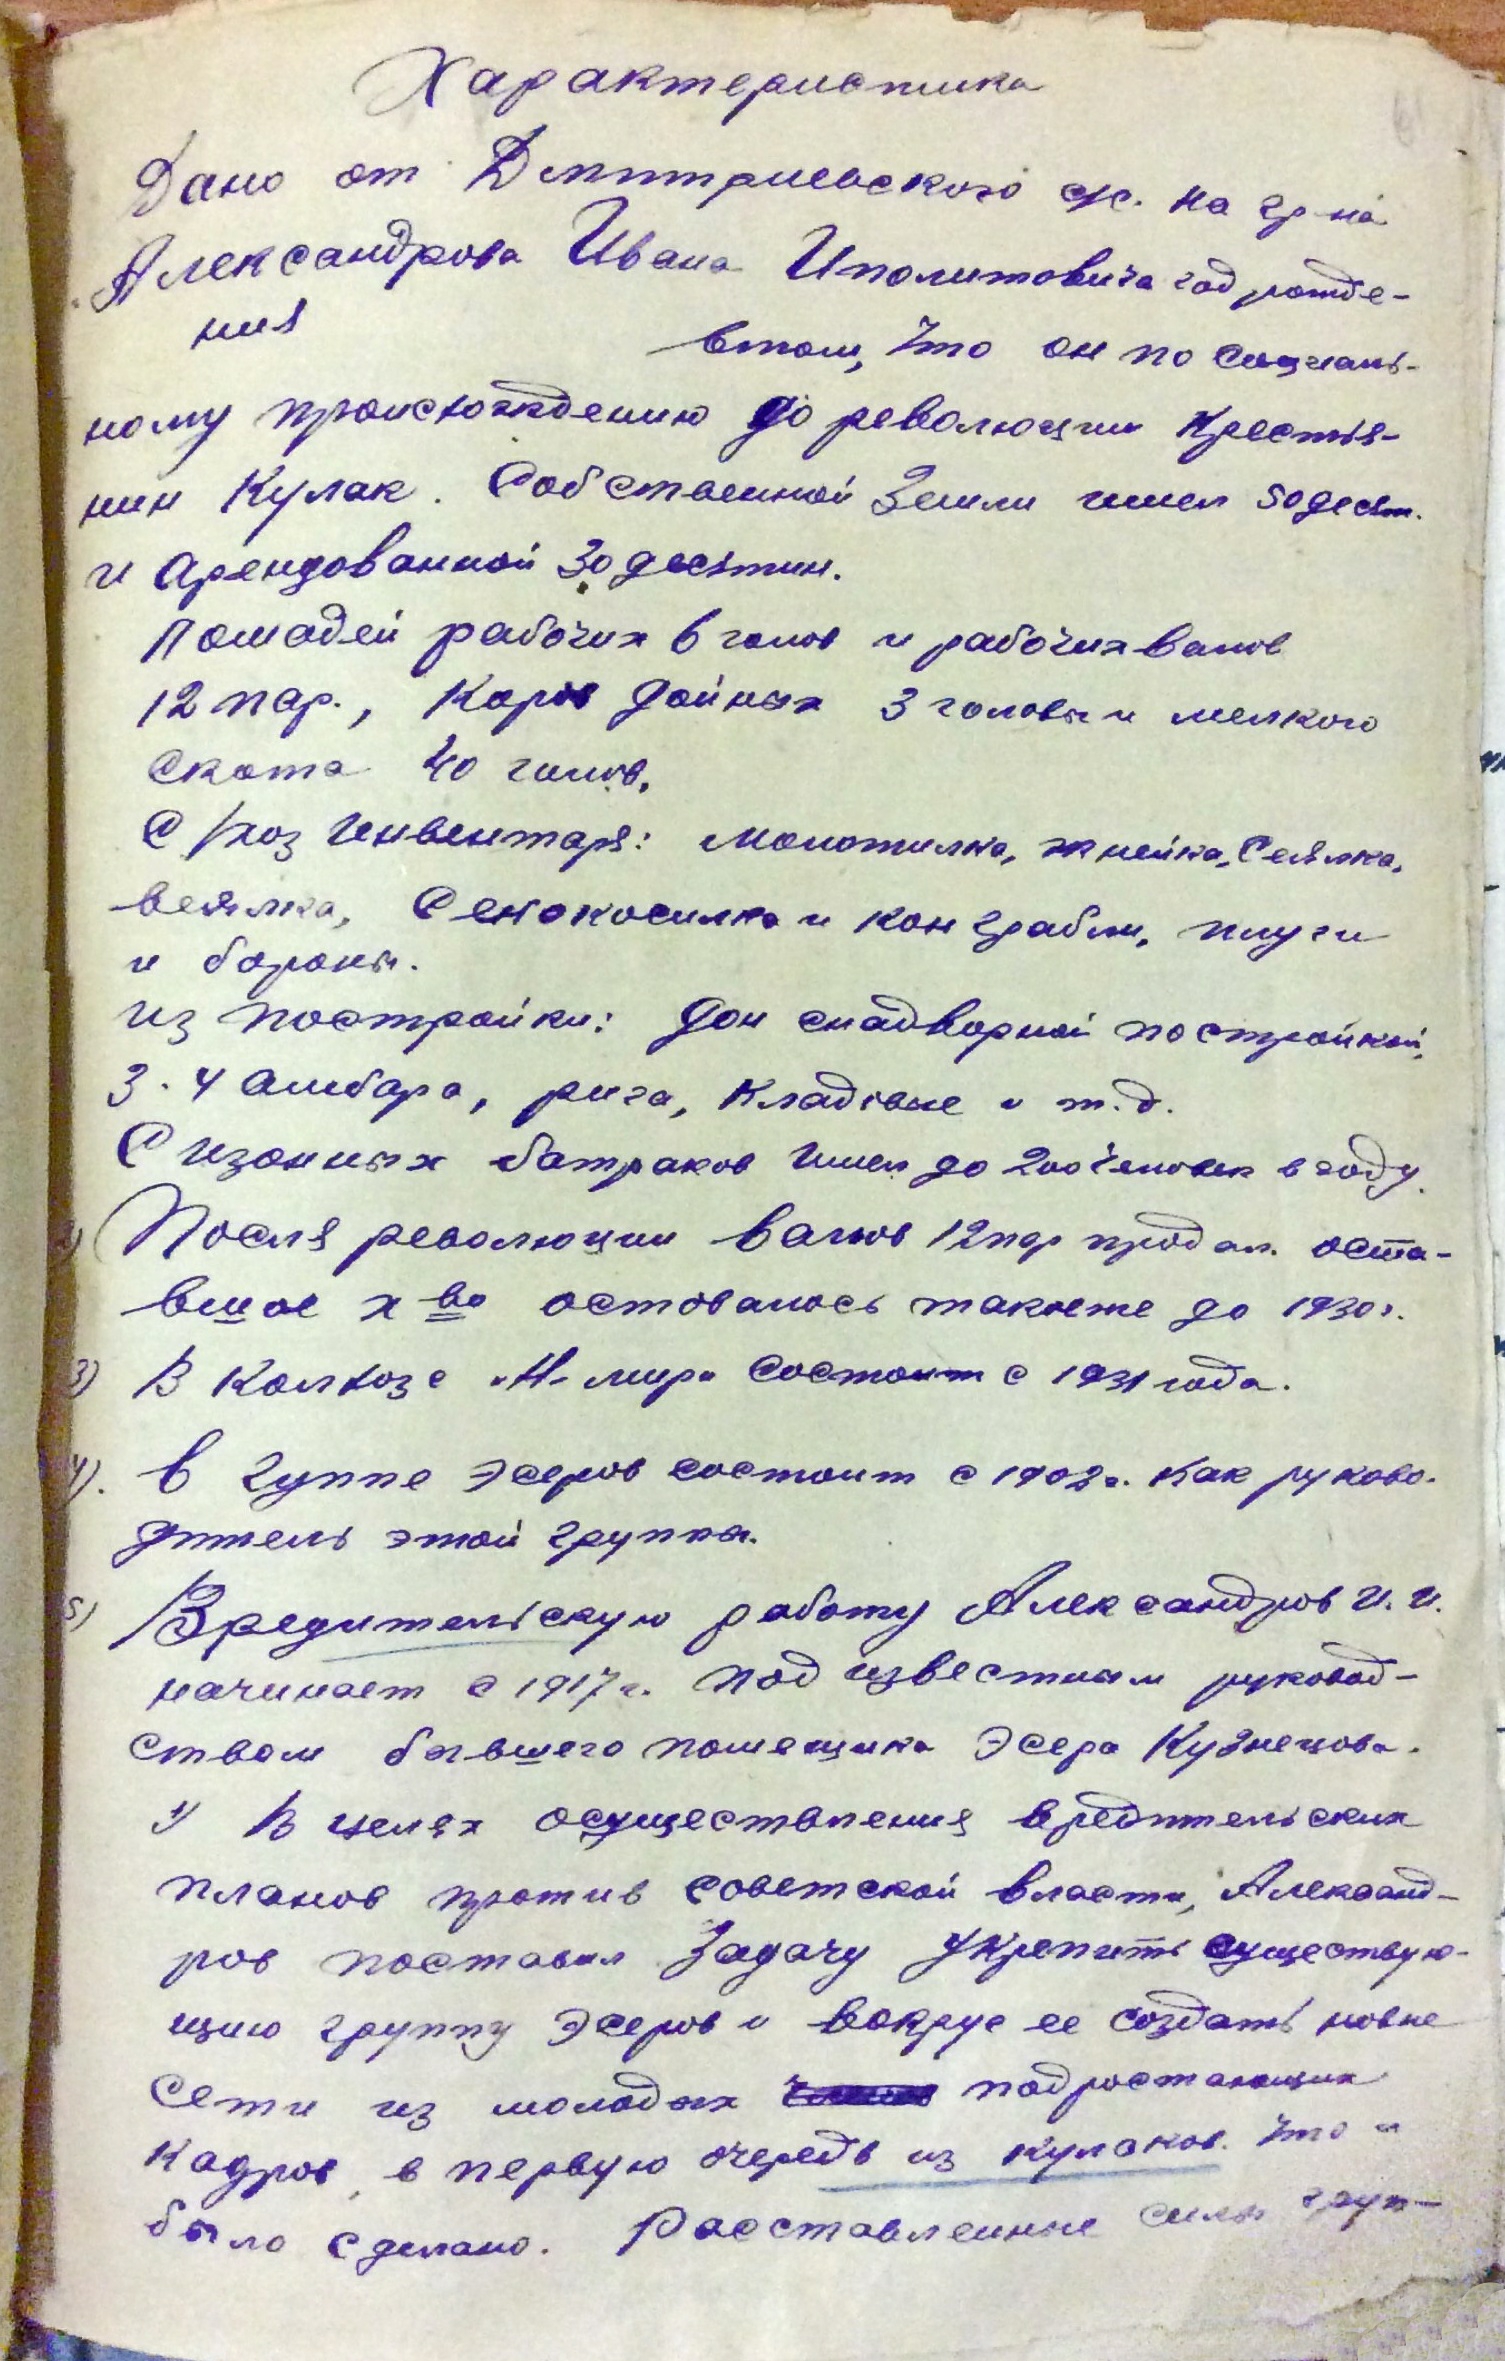 Характеристика
Дано от Дмитриевского с/с. на гр-на
Александрова Ивана Иполитовича год рожде-
ния
втом, что он по социаль-
ному происхождению до революции Крестья-
нин Кулак. Собственной Земли имел 50 десят.
и арендованной 30 десятин.
Лошадей рабочих 6 голов и рабочих валов
12 пар., Коров дойных 3 головы и мелкого
скота 40 голов,
С/хоз инвентаря: молотилка, жнейка, Сеялка,
веялка, Сенокосилка и кон грабли, плуги
и бороны.
из постройки: дом снадворной постройкой,
3-4 амбара, рига, кладовые и т.д.
Сизонных батраков имел до 200 человек в году.
2) Посля революции валов 12 пар продал. оста-
вшое х во остовалось такжеже до 1930 г.
3) В колхозе "Н-мир" состоит с 1931 года.
4). в гуппе эсеров состоит с 1902 г. как руково-
дитель этой группы.
5) Вредительскую работу Александров И.И.
начинает с 1917 г. под известным руковод-
ством бывшего помещика Эсера Кузнецова.
1) В целях осуществления вредительских
планов против советской власти, Александ-
ров поставил Задачу Укрепить существую-
щию группу Эсеров и вокруг ее создать новые
сети из молодых подростающих
кадров, в первую очередь из кулаков. что и
было сделано. Расставленные силы груп-